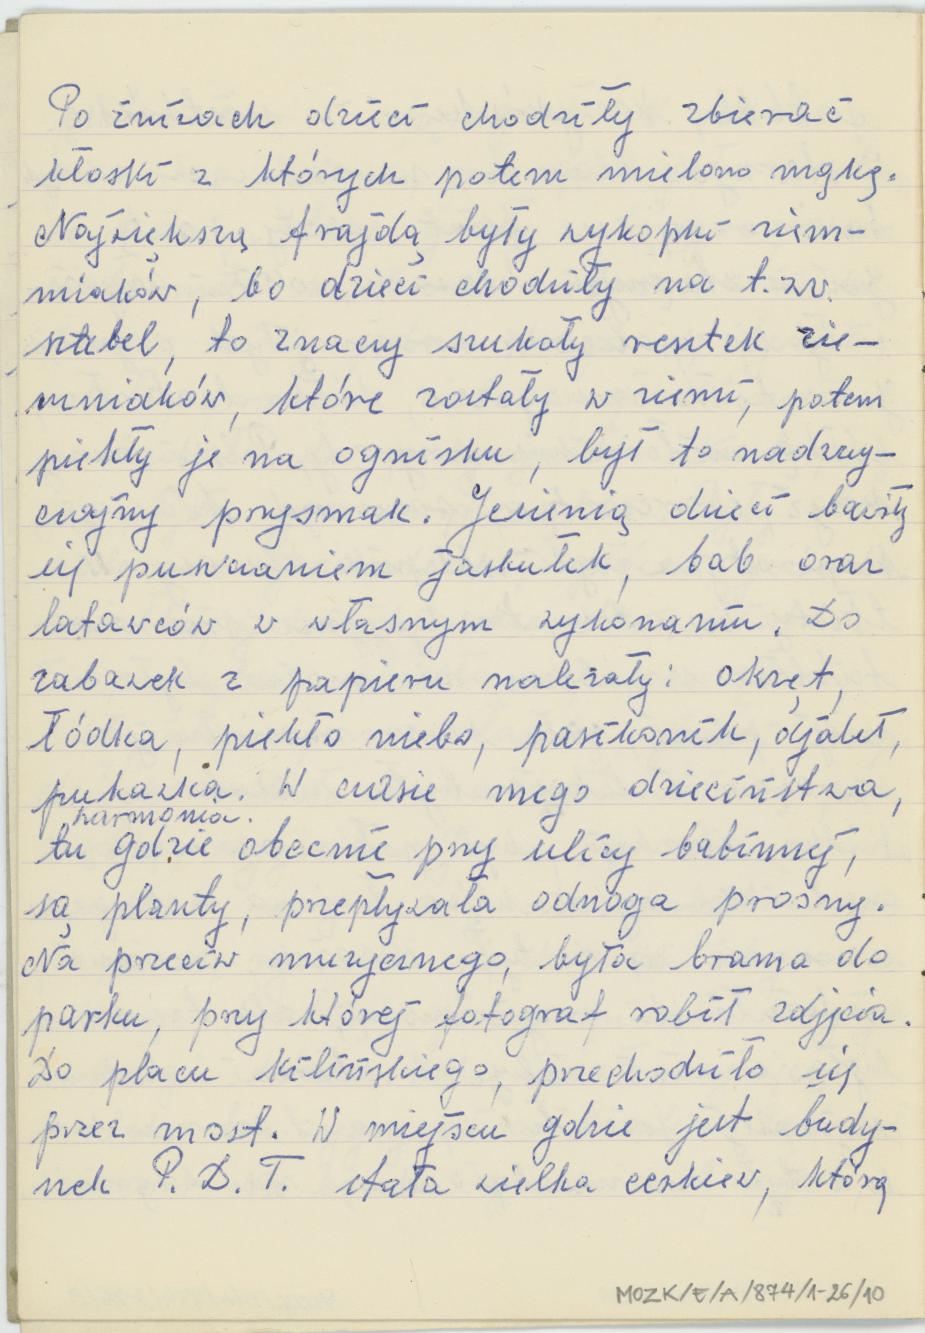 Po żniwach dzieci chodziły zbierać
kłoski z których potem mielono mąkę.
Największą frajdą były wykopki ziem-
miaków, bo dzieci chodziły na t.zw.
sztebel, to znaczy szukały resztek zie-
mniaków, które zostały w ziemi, potem
piekły je na ognisku, był to nadzwy-
czajny przysmak. Jesienią dzieci bawiły
się puszczaniem jaskułek, bab oraz
latawców w własnym wykonaniu. Do
zabawek z papieru należały: okręt,
łódka, piekło niebo, pasikonik, djabeł,
pukawka. W czasie mego dzieciństwa,
harmonia.
tu gdzie obecnie przy ulicy babinnej,
są planty, przepływała odnoga prosny.
Na przeciw muzycznego, była brama do
parku, przy której fotograf robił zdjęcia.
Do placu kilińskiego, przechodziło się
przez most. W miejscu gdzie jest budy-
nek P.D.T. stała wielka cerkiew, którą
MOZK/E/A/874/1-26/10